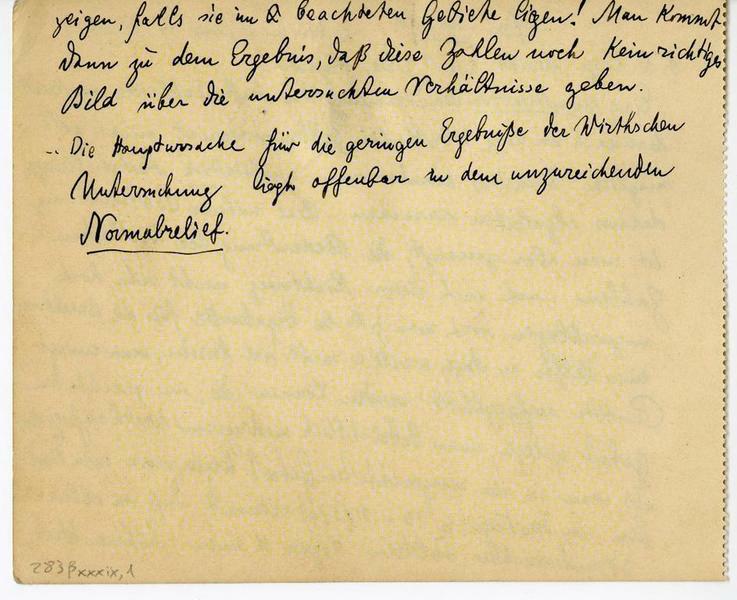 zeigen, falls sie im & beachteten Gebiete ligen! Man kommt
dann zu dem Ergebnis, daß diese Zahlen noch kein richtiges
Bild über die untersuchten Verhältnisse geben.
Die Hauptursache für die geringen Ergebniße der Wirthschen
Untersuchung liegt offenbar in dem unzureichenden
Normalrelief.
283βxxxix,1